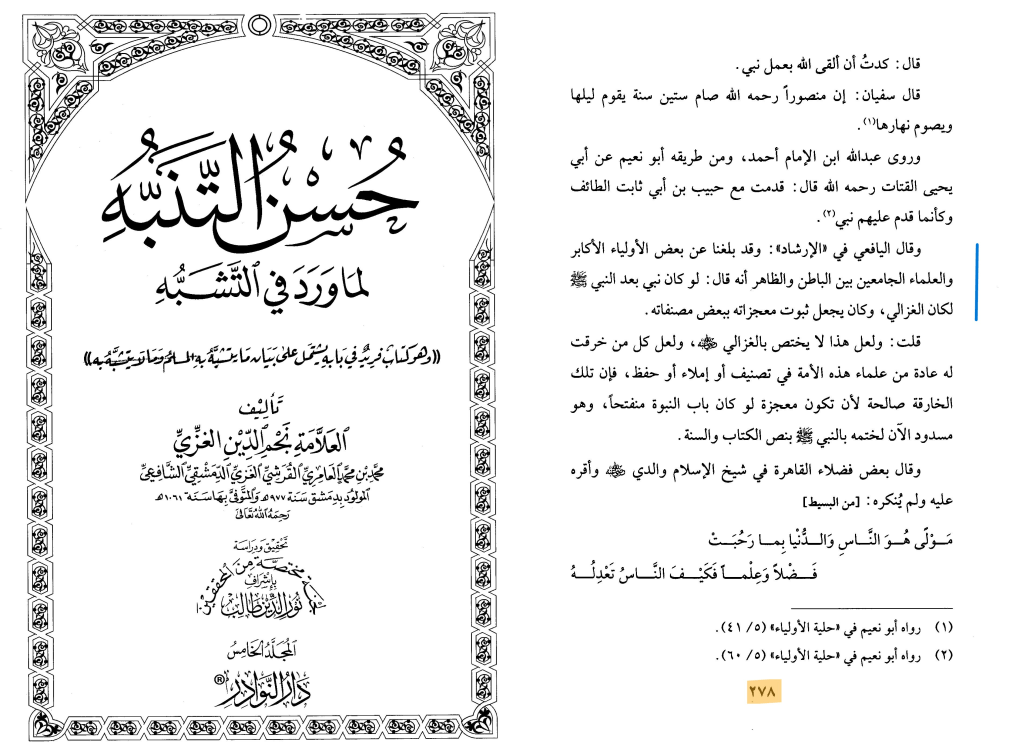 حُسْنُ التَّنَبُّهِ
لِمَا وَرَدَ فِي التَّشَبُّهِ
((وهو كتاب فريد في بابه يشتمل على بيان ما يتشبه به المسلم وما لا يتشبه به))
تأليف
العلامة نجم الدين الغزي
محمد بن محمد العامري القرشي الغزي الدمشقي الشافعي
المولود بدمشق سنة ٩٧٧هـ والمتوفى بها سنة ١٠٦١هـ
رحمه الله تعالى
تحقيق ودراسة
لجنة مختصة من المحققين
بإشراف
نور الدين طالب
المجلد الخامس
دار النوادر®
قال: كدتُ أن ألقى الله بعمل نبي.
قال سفيان: إن منصوراً رحمه الله صام ستين سنة يقوم ليلها
ويصوم نهارها(١).
وروى عبدالله ابن الإمام أحمد، ومن طريقه أبو نعيم عن أبي
يحيى القتات رحمه الله قال: قدمت مع حبيب بن أبي ثابت الطائف
وكأنما قدم عليهم نبي(٢).
وقال اليافعي في «الإرشاد»: وقد بلغنا عن بعض الأولياء الأكابر
والعلماء الجامعين بين الباطن والظاهر أنه قال: لو كان نبي بعد النبي ﷺ
لكان الغزالي، وكان يجعل ثبوت معجزاته ببعض مصنفاته.
قلت: ولعل هذا لا يختص بالغزالي ﵁، ولعل كل من خرقت
له عادة من علماء هذه الأمة في تصنيف أو إملاء أو حفظ، فإن تلك
الخارقة صالحة لأن تكون معجزة لو كان باب النبوة منفتحاً، وهو
مسدود الآن لختمه بالنبي ﷺ بنص الكتاب والسنة.
وقال بعض فضلاء القاهرة في شيخ الإسلام والدي ﵁ وأقره
عليه ولم يُنكره: [من البسيط]
مَوْلًى هُوَ النَّاسِ وَالدُّنْيا بِما رَحُبَتْ
فَضْلاً وَعِلْماً فَكَيْفَ النَّاسُ تَعْدِلُهُ
(١) رواه أبو نعيم في «حلية الأولياء» (٥/ ٤١).
(٢) رواه أبو نعيم في «حلية الأولياء» (٥/ ٦٠).
٢٧٨